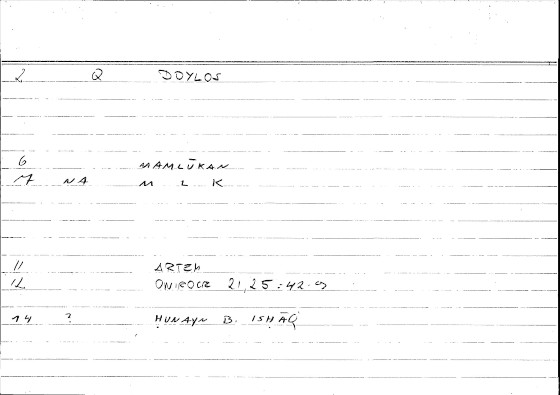 2 Q DOYLOS
6 MAMLŪKAN
7 NA M L K
11 ARTEM
12 ONIROCR 21,25:42.9
14 ? ḤUNAYN B. ISḤĀQ